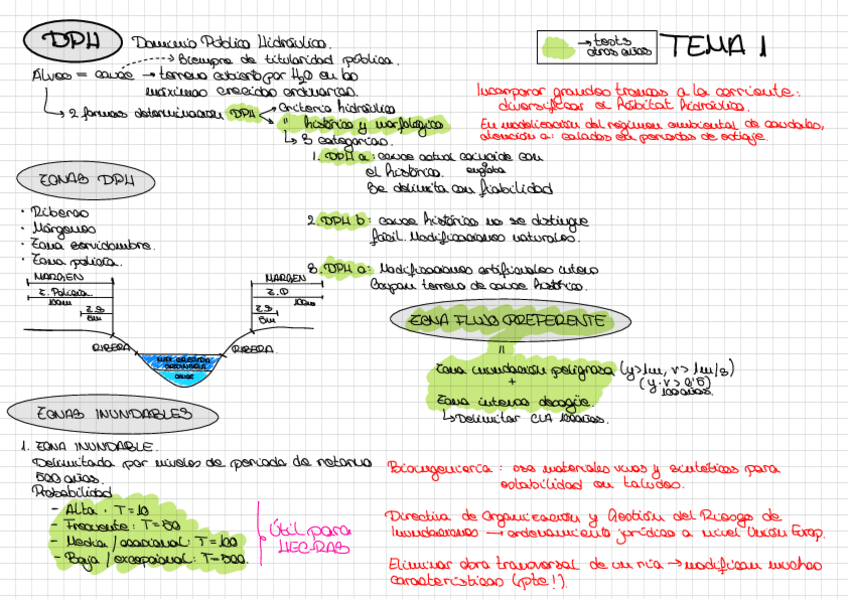 DPH Dominio Público Hidráulico.
Siempre de titularidad pública.
Álveo = cauce → terreno cubierto por H2O en las
máximas crecidas ordinarias.
2 formas determinación DPH
Criterio hidráulico
" histórico y morfológico
↳ 3 categorías.
1. DPH a: cauce actual coincide con
el histórico.
Se delimita con fiabilidad
2. DPH b: cauce histórico no se distingue
fácil. Modificaciones naturales.
3. DPH c: Modificaciones artificiales
Ocupan terreno de cauce histórico.
→ tests
otros años
TEMA 1
Incorporar grandes troncos a la corriente:
diversificar el hábitat hidráulico.
En modelización del régimen ambiental de caudales,
atención a: calados en periodos de estiaje.
ZONAS DPH
· Riberas
· Márgenes
· Zona servidumbre.
· Zona policía.
MARGEN
Z. Policía
100m
Z.S
5m
RIBERA
MARGEN
Z.P
100m
Z.S
5m
RIBERA
MÁX. CRECIDA
ORDINARIA
CAUCE
ZONA FLUJO PREFERENTE
=
Zona inundación peligrosa (y>1m, v>1m/s)
+
(y·v>0'5)
100 años.
Zona intenso desagüe.
↳ Delimitar CLA 100 años.
ZONAS INUNDABLES
1. ZONA INUNDABLE.
Delimitada por niveles de periodo de retorno
500 años.
Probabilidad
- Alta: T=10
- Frecuente: T=50
- Media / ocasional: T=100
- Baja / excepcional: T=500.
Útil para
HEC-RAS
Bioingeniería: usa materiales vivos y sintéticos para
estabilidad en taludes.
Directiva de Organización y Gestión del Riesgo de
Inundaciones → ordenamiento jurídico a nivel Unión Europ.
Eliminar obra transversal de un río → modifican muchas
características (pte!).